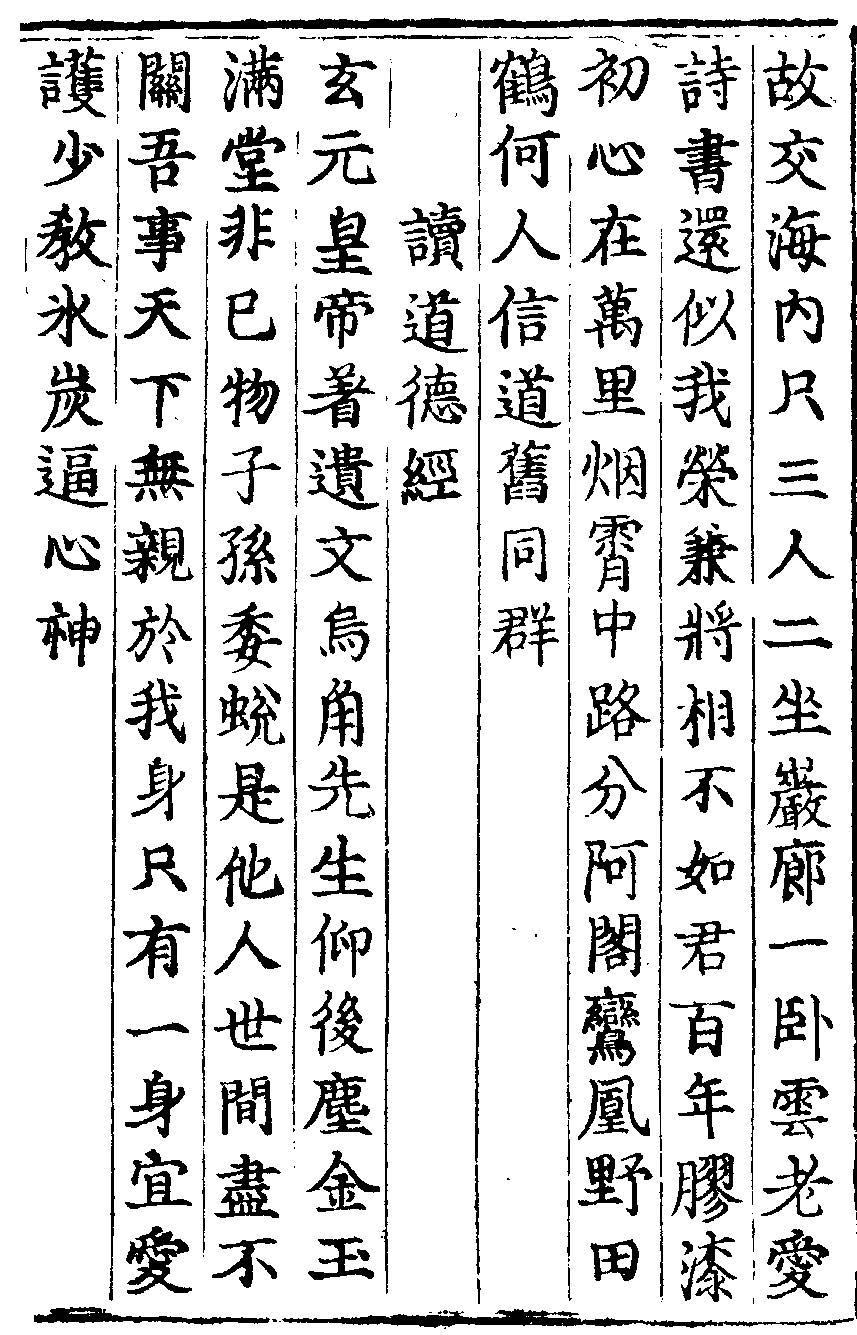 故交海內只三人二坐巖廊一卧雲老愛
詩書還似我榮兼將相不如君百年膠漆
初心在萬里烟霄中路分阿閣鸞凰野田
鶴何人信道舊同群
讀道德經
玄元皇帝着遺文烏角先生仰後塵金玉
滿堂非已物子孫委蛻是他人世間盡不
關吾事天下無親於我身只有一身宜愛
護少教氷炭逼心神